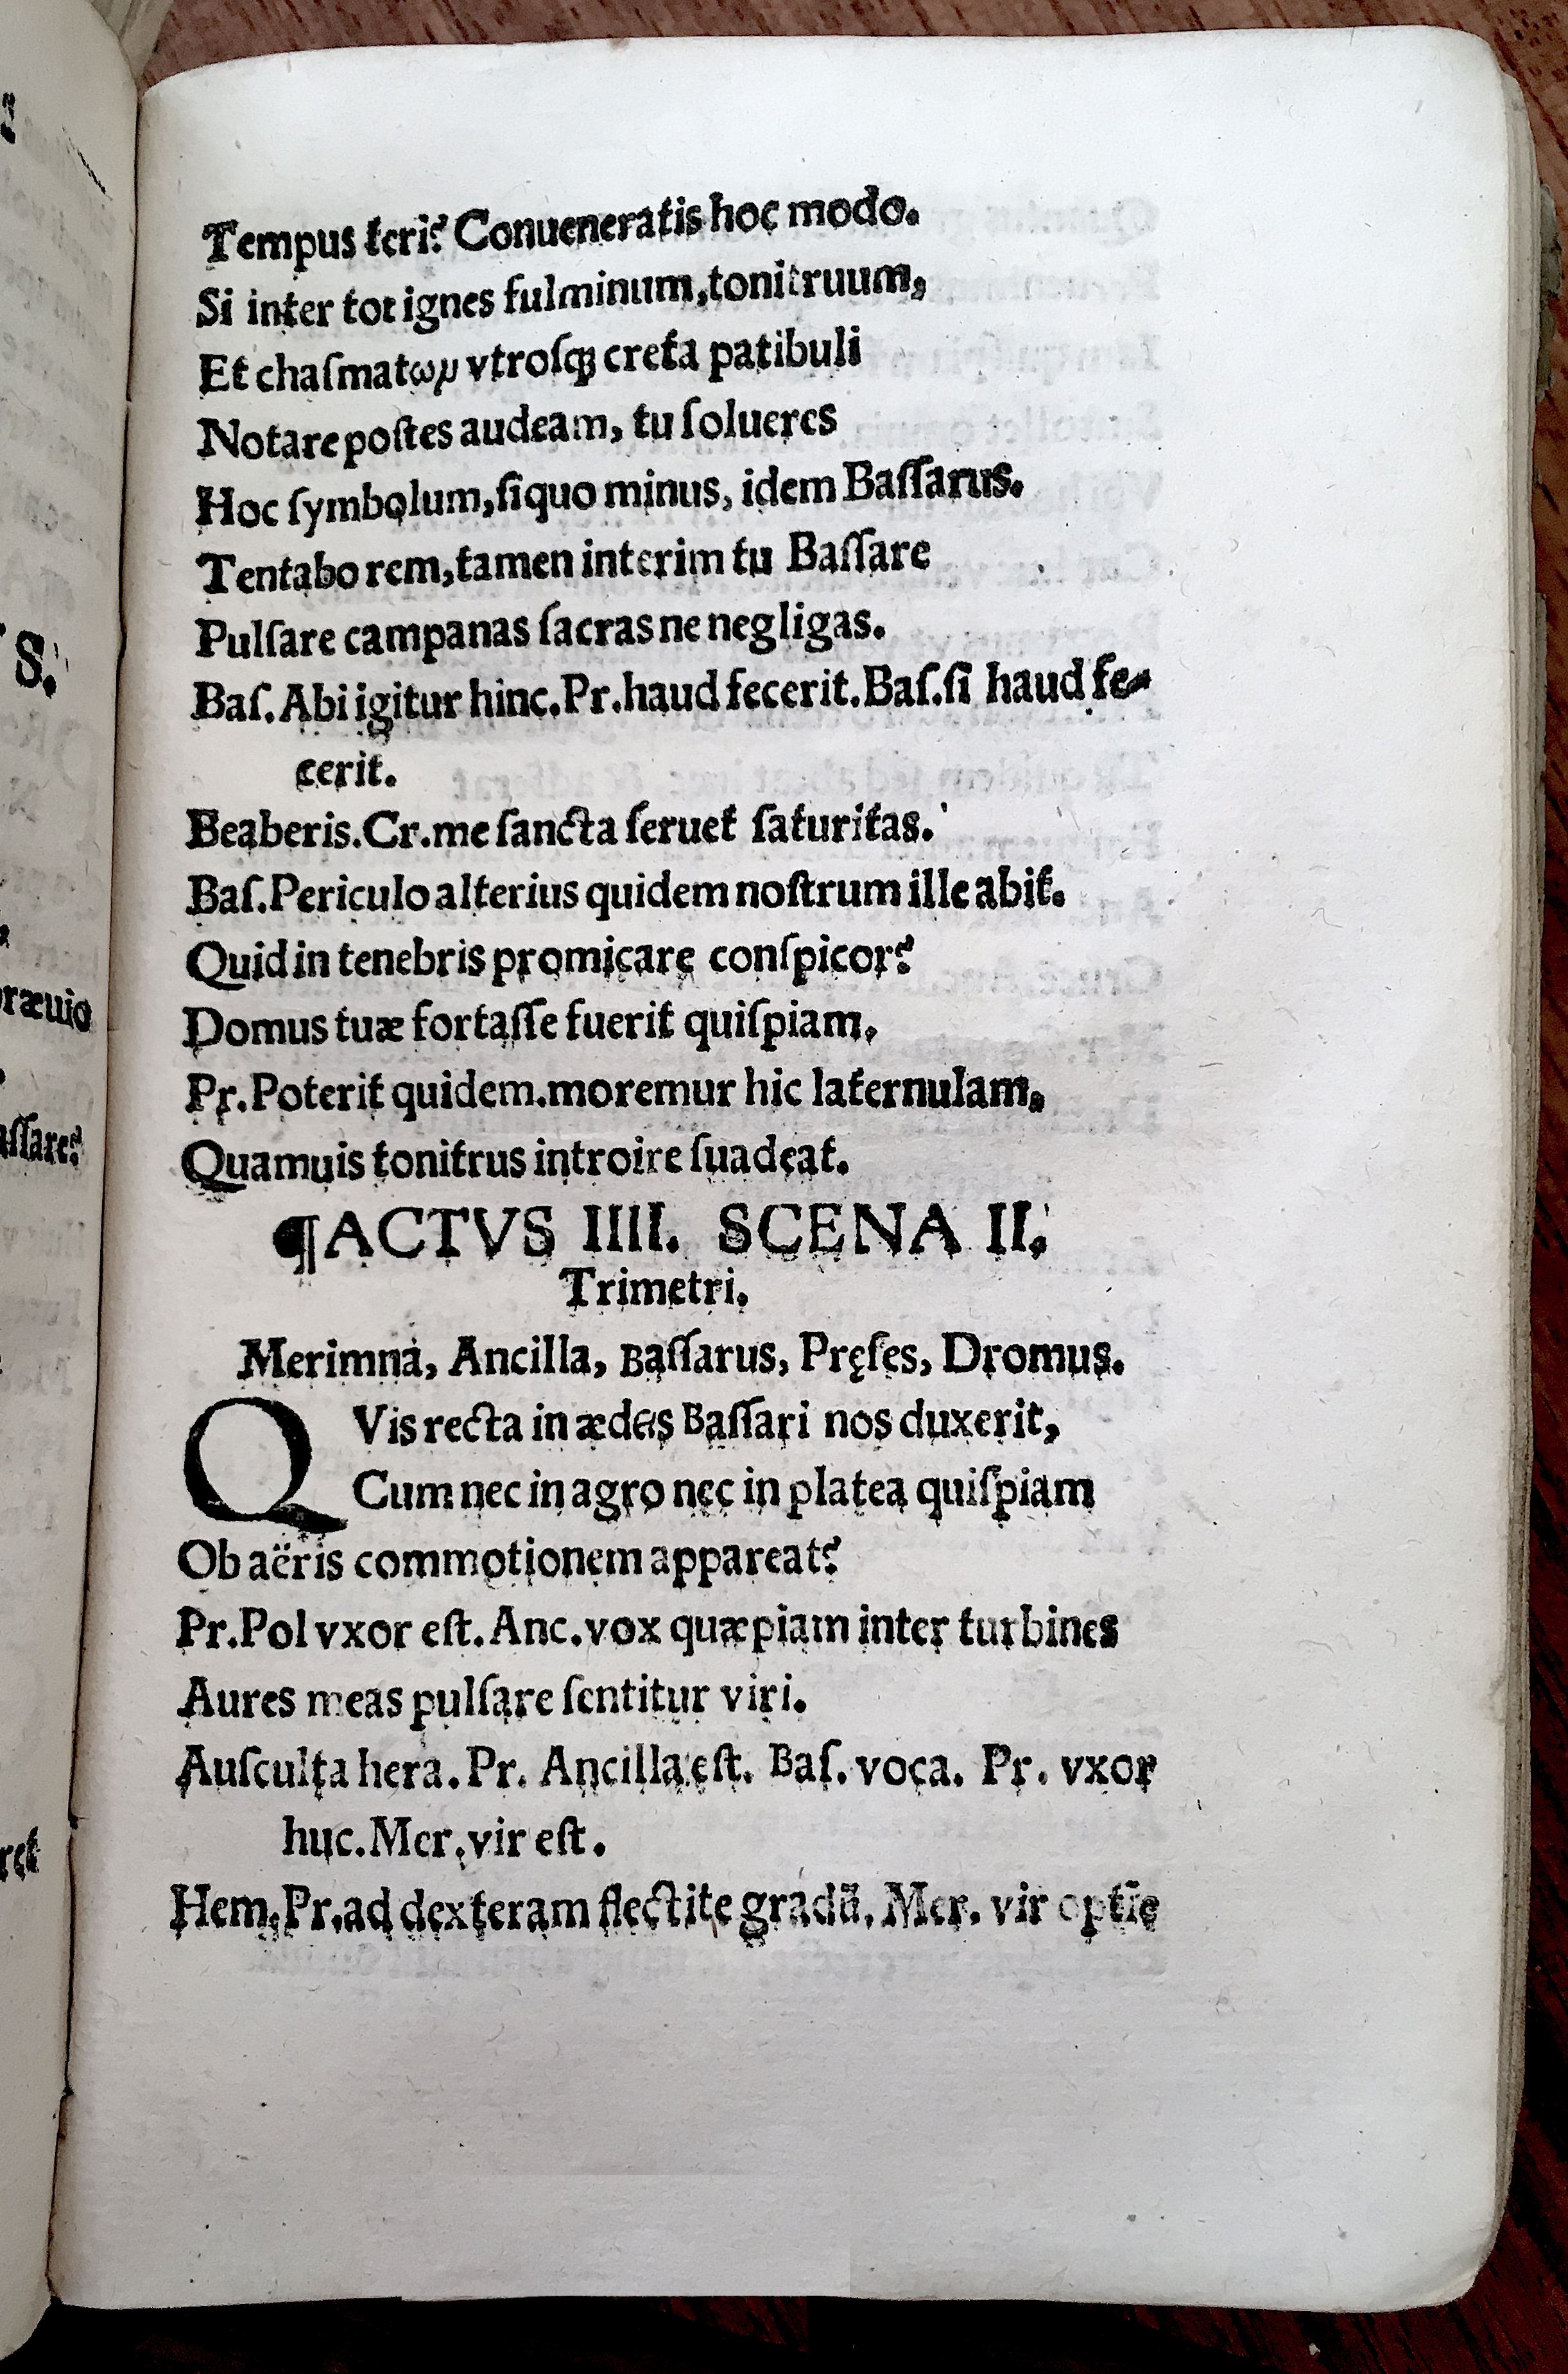 Tempus teri? Conueneratis hoc modo.
Si inter tot ignes fulminum, tonitruum,
Et chaſmatωμ vtroſqꝫ creta patibuli
Notare poſtes audeam, tu ſolueres
Hoc ſymbolum, ſi quo minus, idem Baſſarus.
Tentabo rem, tamen interim tu Baſſare
Pulſare campanas ſacras ne negligas.
Baſ. Abi igitur hinc. Pr. haud fecerit. Baſ. ſi haud fe-
cerit.
Beaberis. Cr. me ſancta ſeruet ſaturitas.
Baſ. Periculo alterius quidem noſtrum ille abit.
Quid in tenebris promicare conſpicor?
Domus tuæ fortaſſe fuerit quiſpiam.
Pr. Poterit quidem. moremur hic laternulam,
Quamuis tonitrus introire ſuadeat.
¶ ACTVS IIII. SCENA II.
Trimetri.
Merimna, Ancilla, Baſſarus, Pręſes, Dromus.
QVis recta in ædes Baſſari nos duxerit,
Cum nec in agro nec in platea quiſpiam
Ob aëris commotionem appareat?
Pr. Pol vxor eſt. Anc. vox quæpiam inter turbines
Aures meas pulſare ſentitur viri.
Auſculta hera. Pr. Ancilla eſt. Baſ. voca. Pr. vxor
huc. Mer. vir eſt.
Hem. Pr. ad dexteram flectite gradū. Mer. vir
S.
ræuio
aſſare?
ret